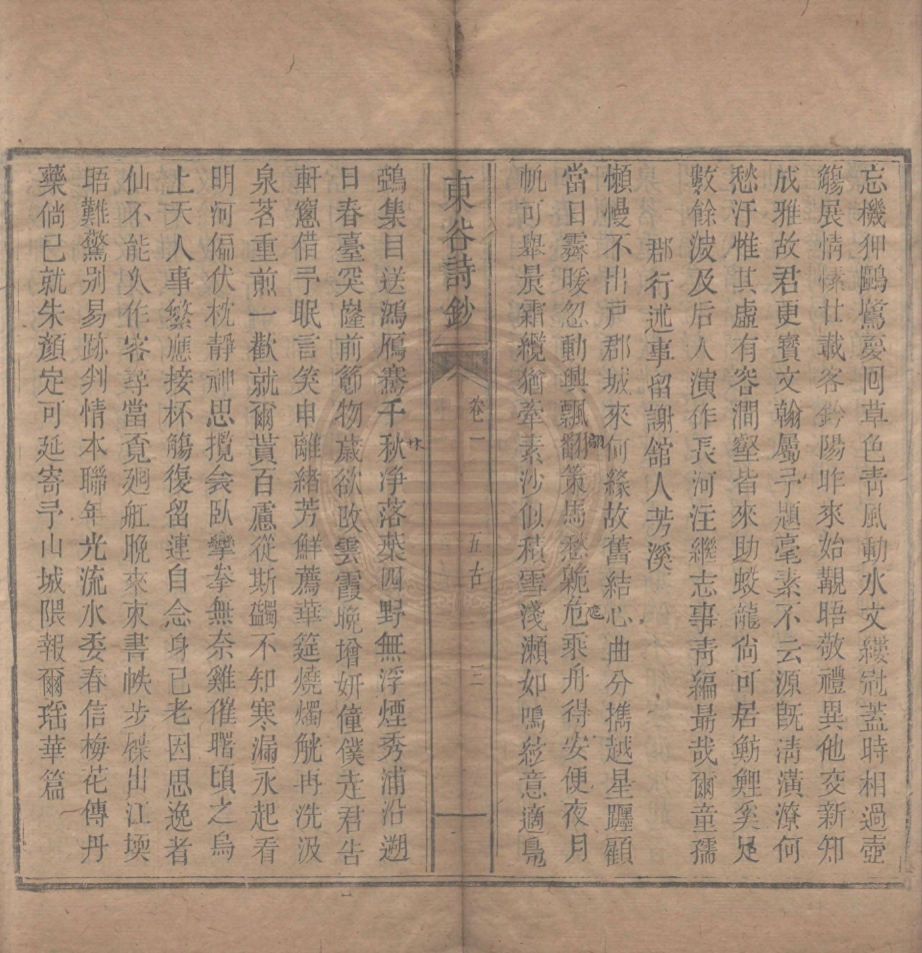 忘機狎鷗鷺憂回草色靑風動水文縵冠蓋時相過壺
觴展情愫廿載客鈐陽昨來始覯晤敬禮異他交新知
成雅故君更寶文翰屬予題毫素不云源旣淸潢潦何
愁汙惟其虛有容澗壑皆來助蛟龍尙可居魴鯉奚足
數餘波及后人演作長河注繼志事靑編勗哉爾童孺
郡行述事留謝舘人芳溪
懶慢不出戶郡城來何緣故舊結心曲分擕越星躔顧
當日霽暖忽動興飄翩策馬愁危乘舟得安便夜月
帆可舉晨霜纜猶牽素沙似積雪淺瀬如鳴絃意適鳧
東谷詩鈔
卷一
五古
三
鷀集目送鴻鴈騫千秋淨落葉四野無浮煙秀浦沿遡
日春臺突嶐前節物歲欲改雲霞晚增妍僮僕走君告
軒窻借予眠言笑申離緒芳鮮薦華筵燒燭觥再洗汲
泉茗重煎一歡就爾貰百慮從斯蠲不知寒漏永起看
明河偏伏枕靜神思攪衾臥攣拳無奈雞催曙頃之烏
上天人事繁應接杯觴復留連自念身已老因思逸者
仙不能久作客尋當覓廻舡晚來束書帙步屧出江堧
晤難驚別易跡判情本聯年光流水委春信梅花傳丹
藥倘已就朱顏定可延寄予山城隈報爾瑤華篇